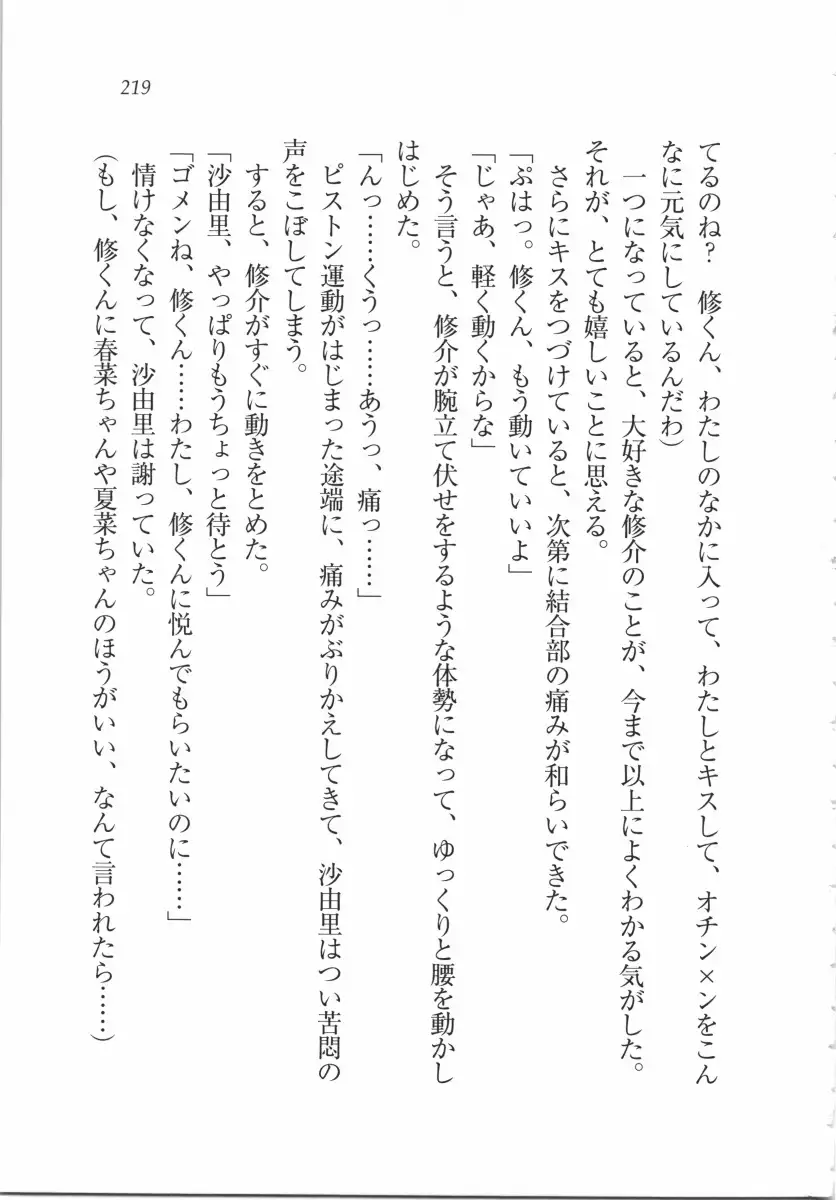 219
てるのね？　修くん、わたしのなかに入って、わたしとキスして、オチン×ンをこん
なに元気にしているんだわ）
　一つになっていると、大好きな修介のことが、今まで以上によくわかる気がした。
それが、とても嬉しいことに思える。
　さらにキスをつづけていると、次第に結合部の痛みが和らいできた。
「ぷはっ。修くん、もう動いていいよ」
「じゃあ、軽く動くからな」
　そう言うと、修介が腕立て伏せをするような体勢になって、ゆっくりと腰を動かし
はじめた。
「んっ……くうっ……あうっ、痛っ……」
　ピストン運動がはじまった途端に、痛みがぶりかえしてきて、沙由里はつい苦悶の
声をこぼしてしまう。
　すると、修介がすぐに動きをとめた。
「沙由里、やっぱりもうちょっと待とう」
「ゴメンね、修くん……わたし、修くんに悦んでもらいたいのに……」
　情けなくなって、沙由里は謝っていた。
（もし、修くんに春菜ちゃんや夏菜ちゃんのほうがいい、なんて言われたら……）